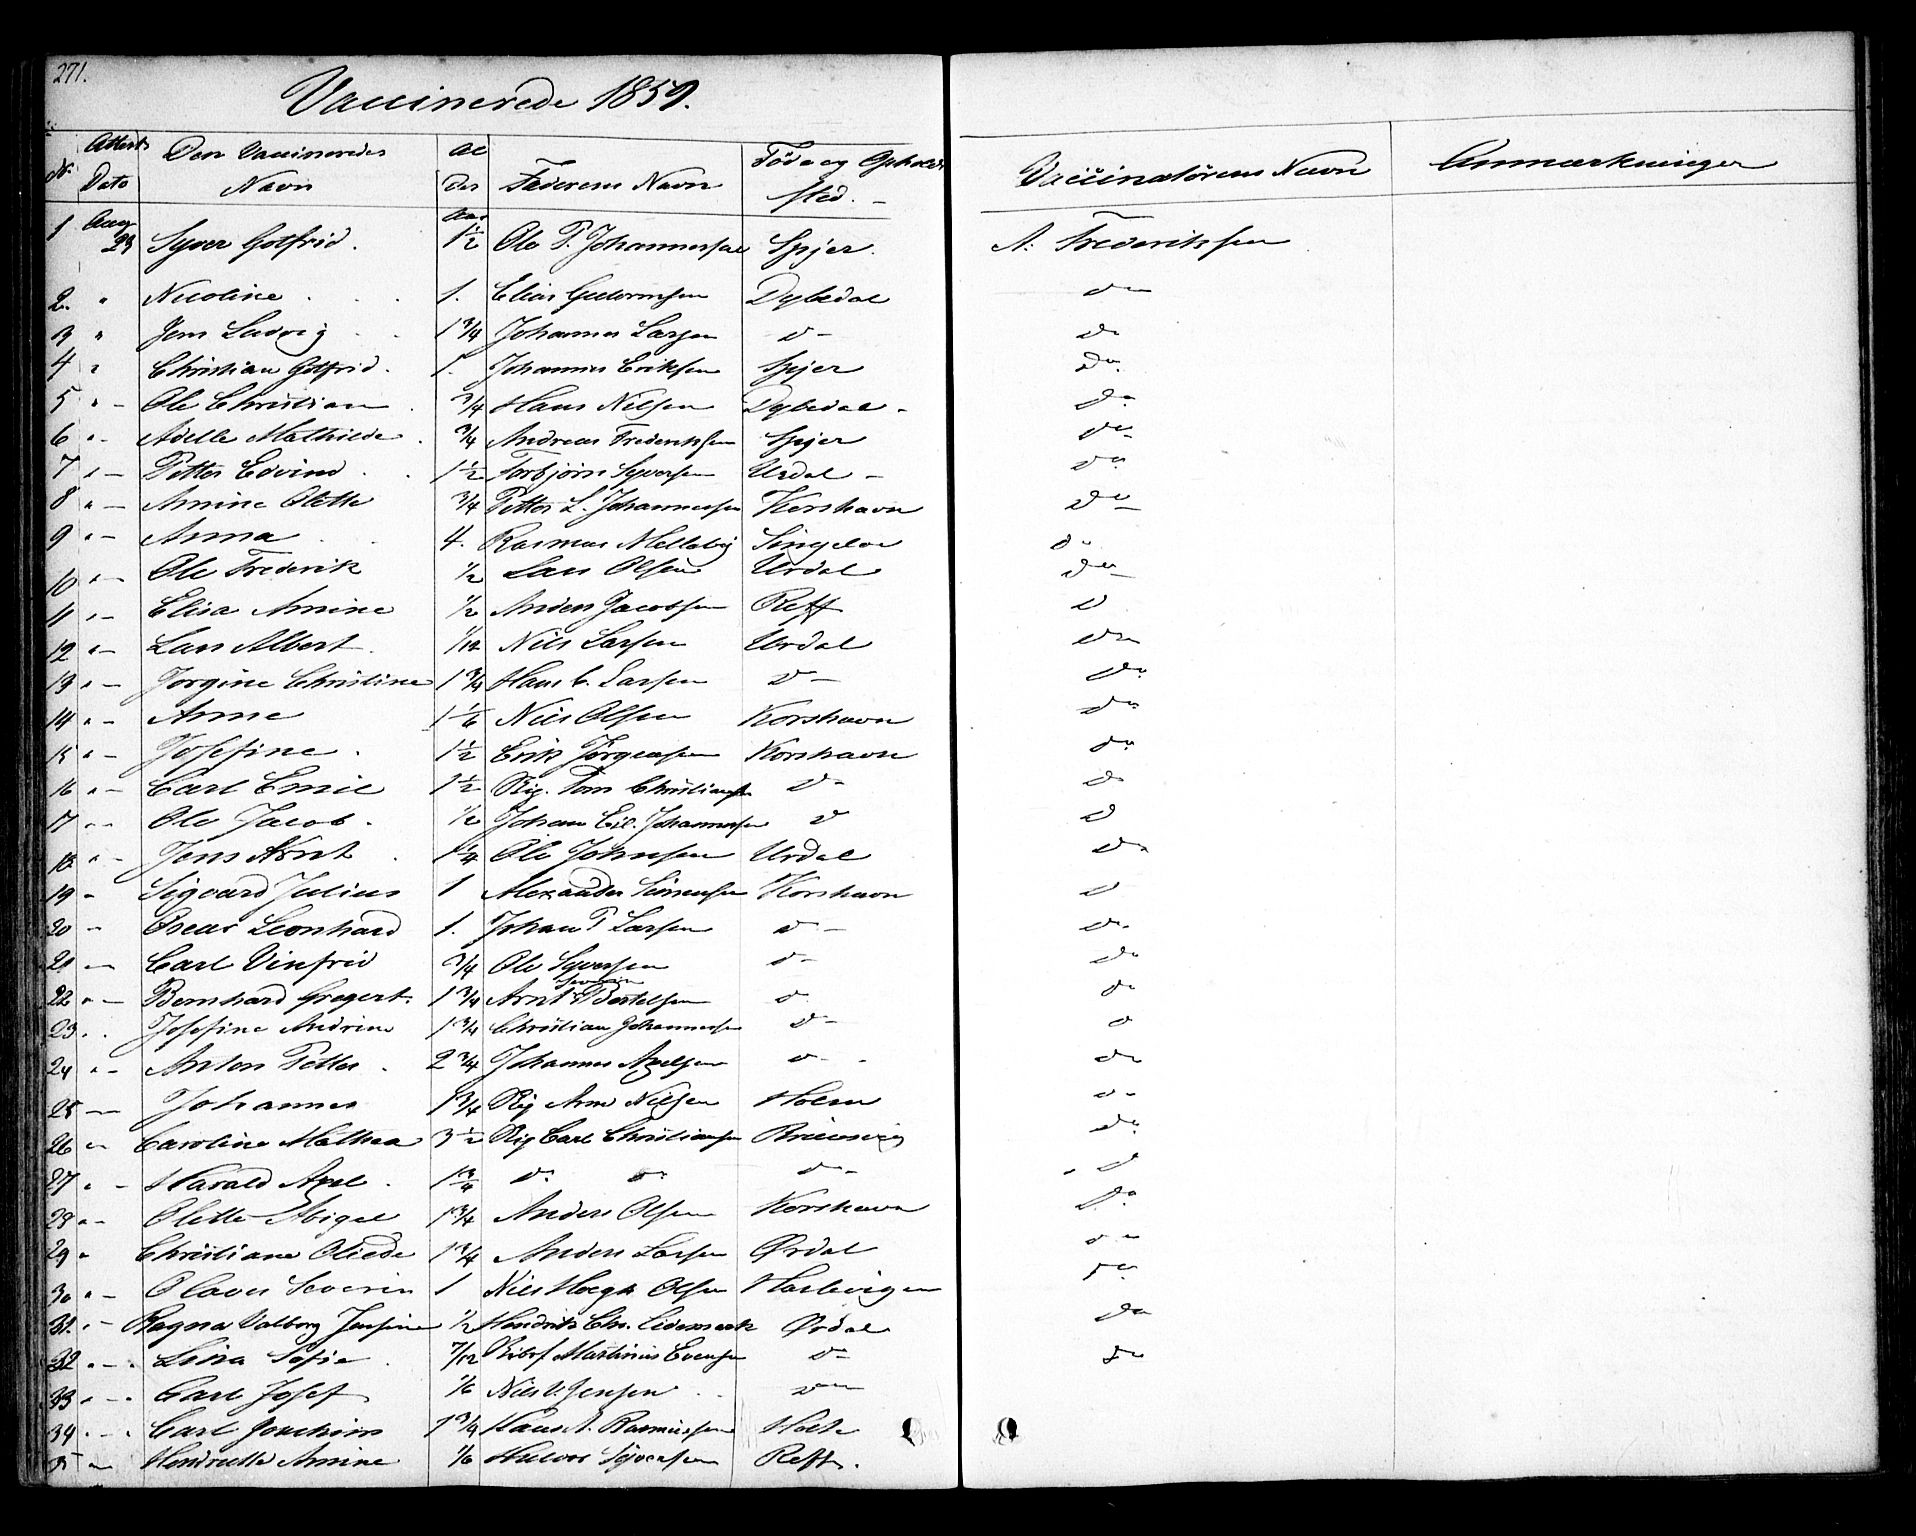 271.
Vaccinerede 1859.
Nr. Attests Dato Den Vaccineredes Navn Alder Faderens Navn Føde og Opholds Sted. Vaccinatørens Navn Anmærkninger
Aar
1 Aug 23 Syver Gotfrid. 1½ Ole P. Johannessen Spjer. A: Frederiksen
2. " Nicoline 1. Elias Dybedal do
3 " Jens Ludvig 1¾ Johannes Larsen do do
4 " Christian Gotfrid. 1. Johannes Eriksen Spjer do
5 " Ole Christian ¾ Hans Nilsen Dybedal do
6 " Adelle Mathilde ¾ Andreas Frederiksen Spjer do
7 " Petter Edvind 1½ Torbjørn Syversen Urdal do
8 " Amine Olette ¾ Petter L. Johannessen Korshavn do
9 " Anna 4. Rasmus do
10 " Ole Frederik ½ Lars Olsen Urdal do
11 " Elisa Amine ½ Anders Jacobsen Reff do
12 " Lars Albert 1/12 Nils Larsen Urdal do
13 " Jorgine Christine 1¾ Hans C. Larsen do do
14 " Anne 1 1/6 Nils Olsen Korshavn do
15 " Josefine 1½ Erik Jørgensen Korshavn do
16 " Carl Emil 1½ Christiansen do do
17 " Ole Jacob. ½ Johan Eil. Johannessen do do
18 " Jens Arnt 1¼ Ole Johnsen Urdal do
19 " Sigvard Julius 1 Alexander Simensen Korshavn do
20 " Oscar Leonhard 1. Johan P Larsen do do
21 " Carl Vinfrid ¾ Ole Syversen do do
22 " Bernhard Gregert 1¾ Arnt Severin Bertelsen do do
23 " Josefine Andrine 1¾ Christian Johannessen do do
24 " Anton Petter 2¾ Johannes Axelsen do do
25 " Johannes 1¾ Nilsen Holm do
26 " Caroline Mathea 3½ Carl Christiansen do
27 " Harald Axel 1¾ do do do do
28 " Olette Abigal 1¾ Anders Olsen Korshavn do
29 " Christiane Oliede 1¾ Anders Larsen Ørdal do
30 " Olaves Severin 1 Nils Høegh Olsen do
31. " Ragna Valborg Jensine ½ Hendrik Chr. Lidemark Ørdal do
32 " Lina Sofie 7/12 Martinius Evensen do do
33 " Carl Josef 1/6 Nils V. Jensen do
34 " Carl Joachim 1¾ Hans A. Rasmussen
35 " Hendrette Amine 1/6 Halvor Syversen Reff.